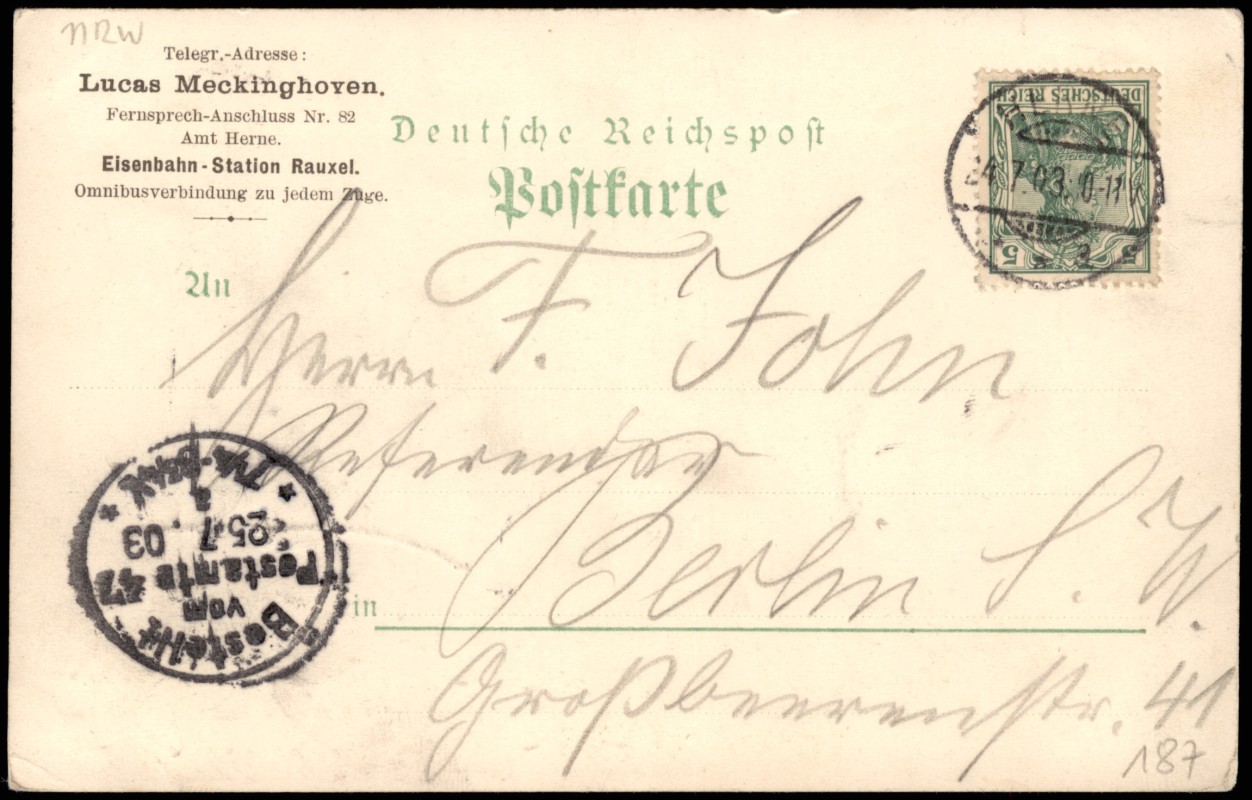 NRW
Telegr.-Adresse:
Lucas Meckinghoven.
Fernsprech-Anschluss Nr. 82
Amt Herne.
Eisenbahn-Station Rauxel.
Omnibusverbindung zu jedem Zuge.
Deutsche Reichspost
Postkarte
DEUTSCHES REICH
5 5
24.7.03. 10-11V
An
Herrn F. John
Referendar
in Berlin S. W.
Großbeerenstr. 41
187
Bestellt
vom
Postamte 47
25.7 03